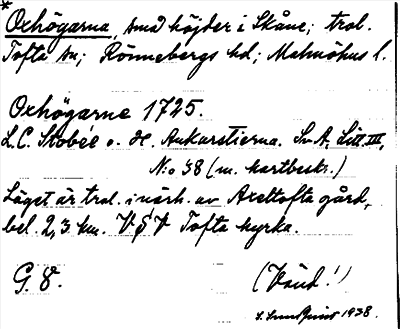 *Oxhögarna, små höjder i Skåne; trol.
Tofta sn; Rönnebergs hd; Malmöhus l.
Oxhögarne 1725.
L.C. Stobée o. H. Ankarstierna. Sv A, Litt. III,
N:o 38 (m. kartbeskr.)
Läget är trol. i närh. av Axeltofta gård,
bel. 2,3 km. V g V Tofta kyrka.
G. V.
(Vänd!)
S. Lundquist 1938.